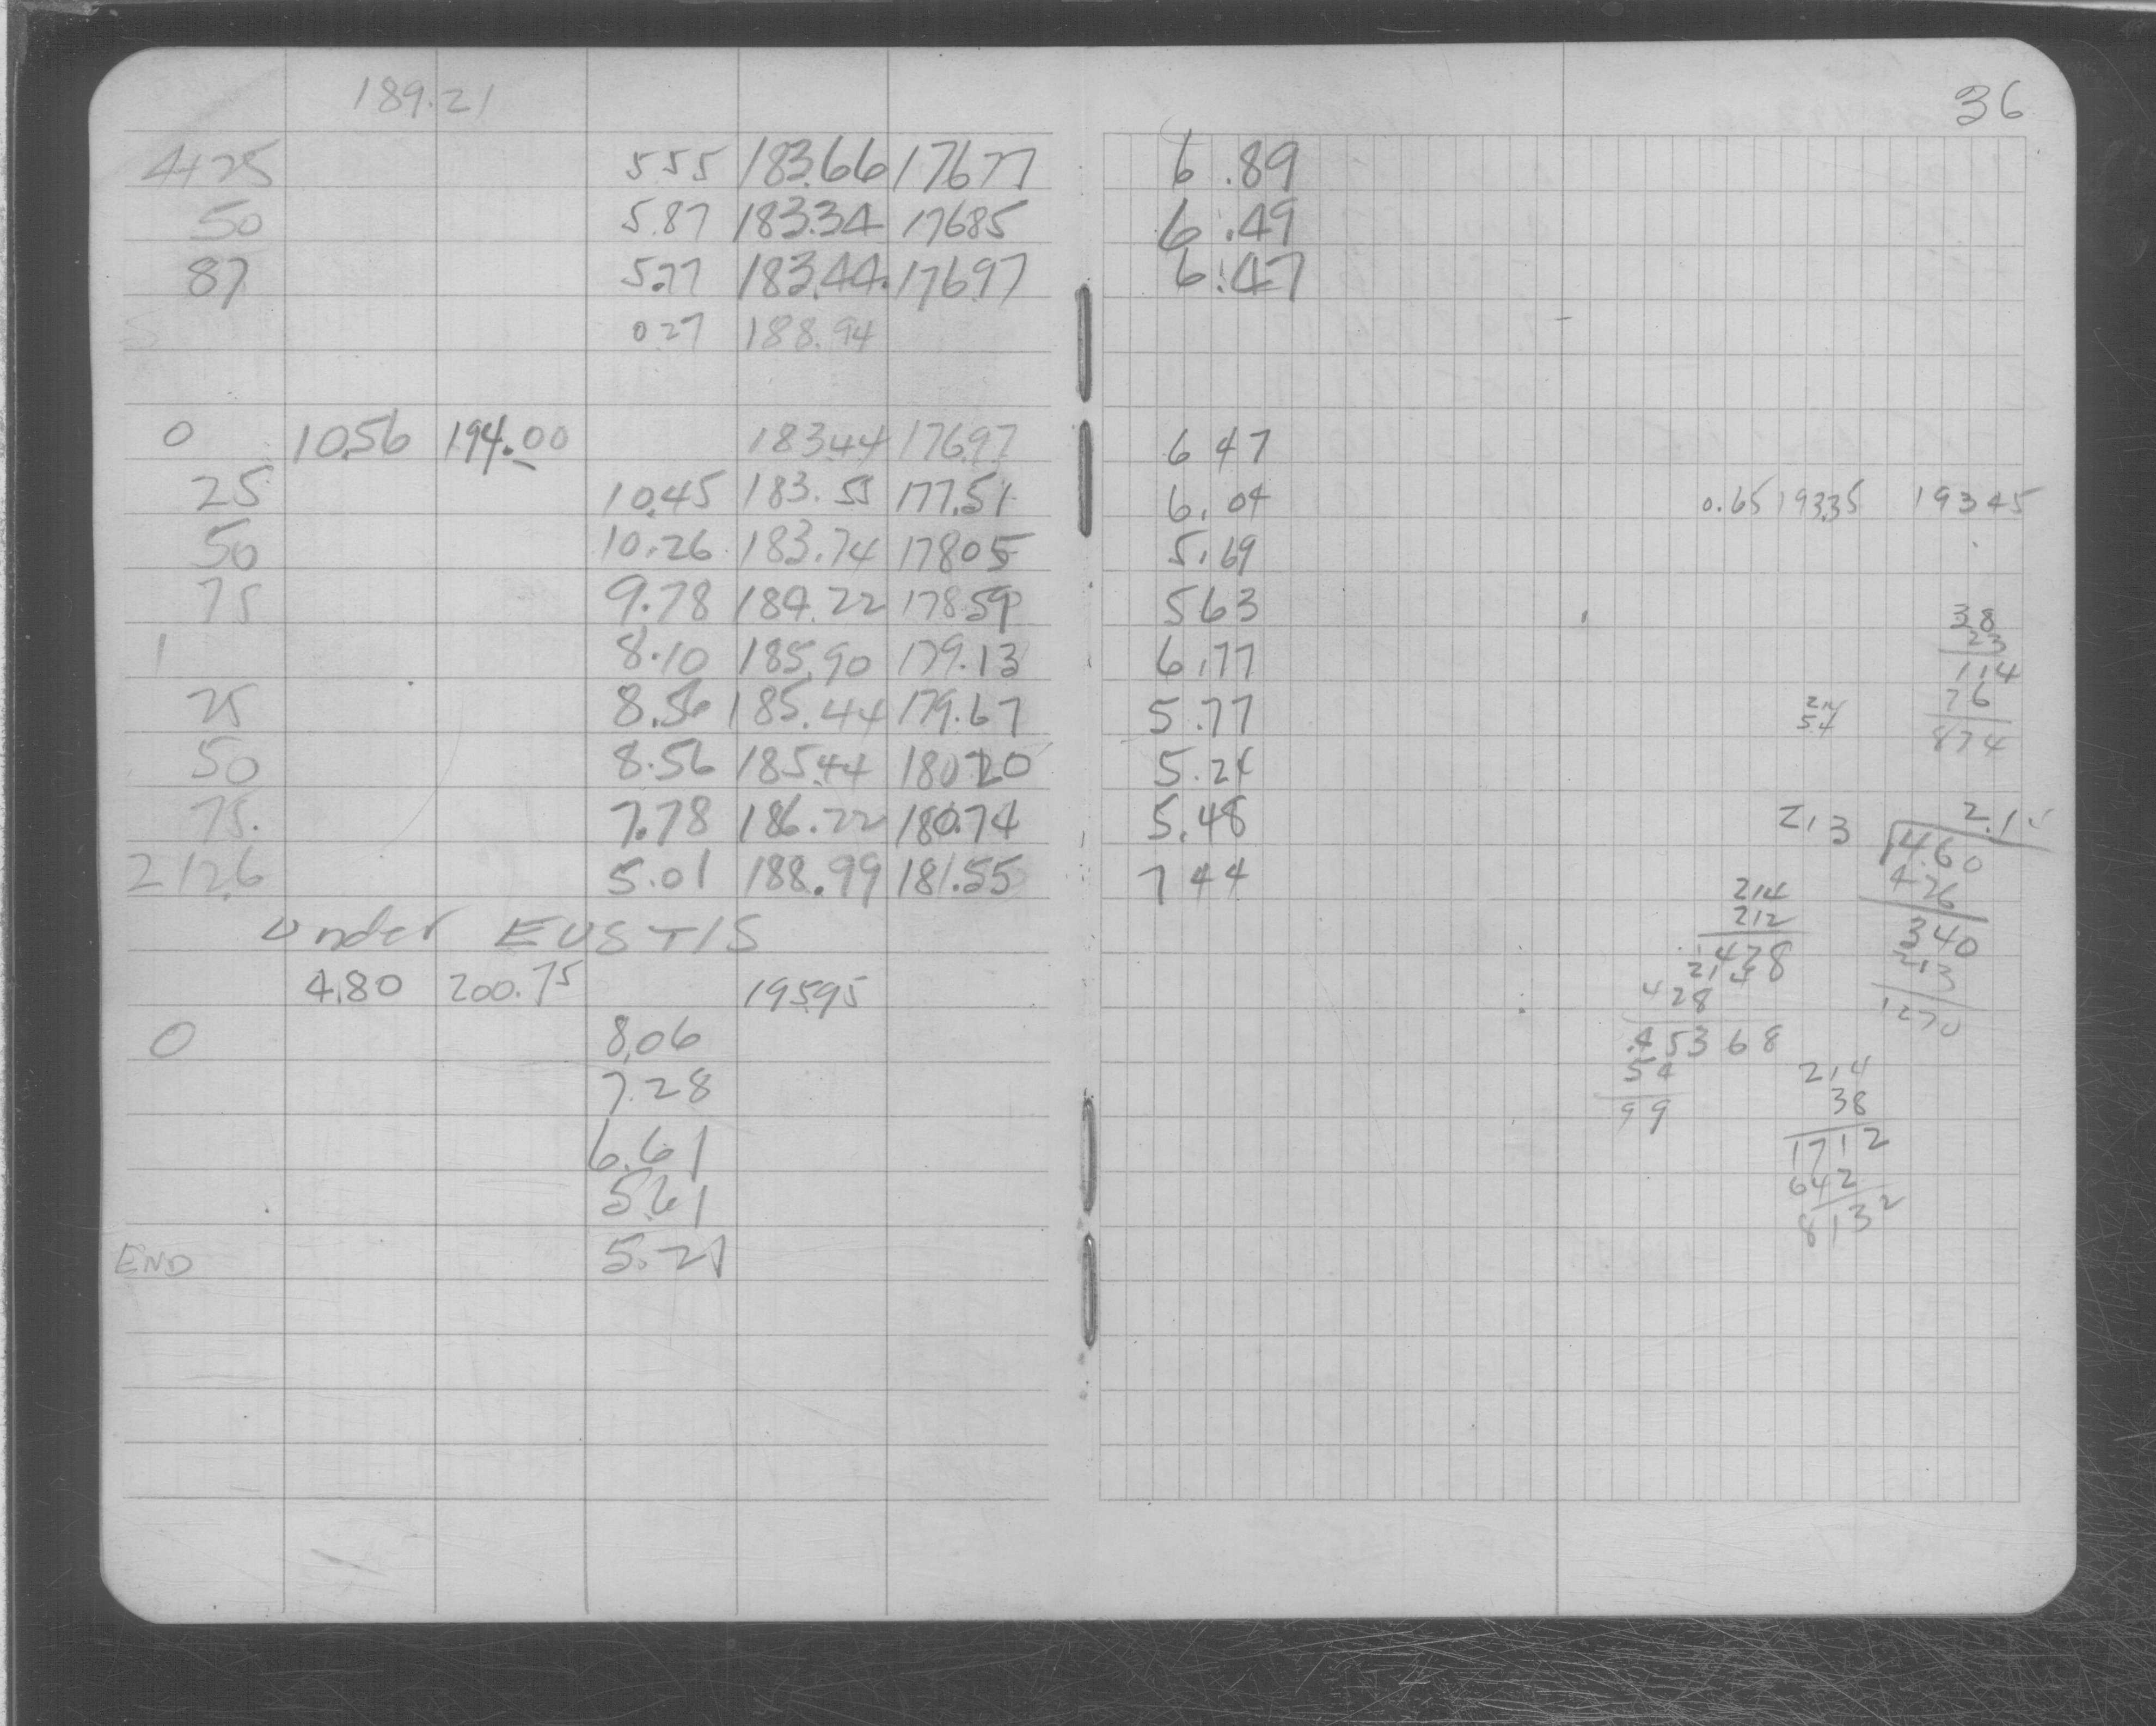 189.21
36
4+25 5.55 183.66 176.77 6.89
50 5.87 183.34 176.85 6.49
87 5.77 183.44 176.97 6.47
0.27 188.94
0 10.56 194.00 183.44 176.97 6 47
25 10.45 183.55 177.51 6.04
50 10.26 183.74 178.05 5.69
75 9.78 184.22 178.59 5 63
1 8.10 185.90 179.13 6.77
25 8.56 185.44 179.67 5.77
50 8.56 185.44 180.20 5.24
75. 7.78 186.22 180.74 5.48
2 12.6 5.01 188.99 181.55 7 44
Under EUSTIS
4.80 200.75 195.95
0 8.06
7.28
6.61
5.61
END 5.21
0.65 193.35 193 45
38
23
114
76
874
54
2.13
4.60
426
340
213
1270
214
212
428
214
428
.45368
54
99
2.14
38
1712
642
8132